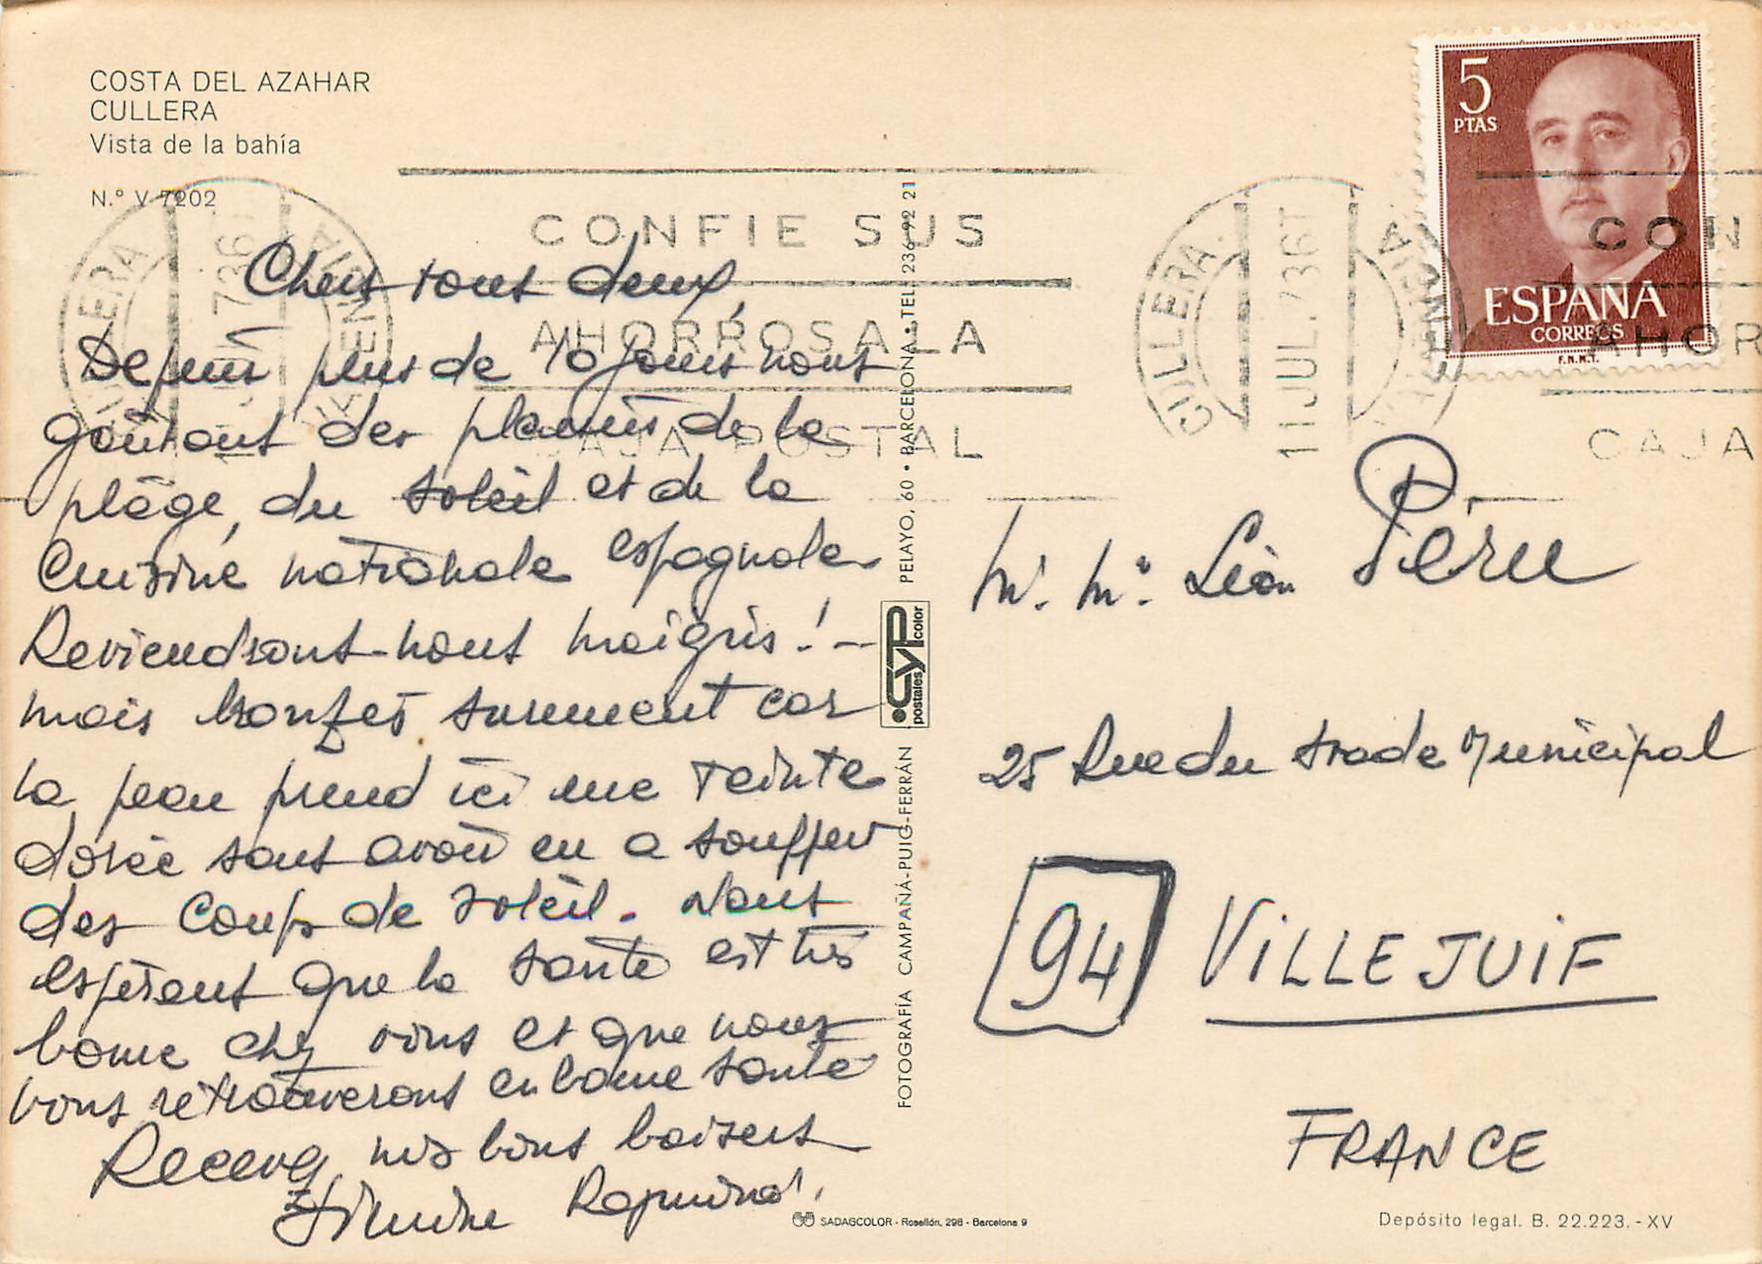 COSTA DEL AZAHAR
CULLERA
Vista de la bahía
N.º V-7202
5
PTAS
ESPAÑA
CORREOS
F.N.M.T.
CONFIE SUS
AHORROS A LA
CAJA POSTAL
CULLERA
VALENCIA
CULLERA
11 JUL. 73
VALENCIA
CON
AHOR
CAJA
Chers tous deux,
Depuis plus de 10 jours nous
goûtons des plaisirs de la
plage, du soleil et de la
Cuisine nationale espagnole
Reviendrons-nous maigris ! -
mais bronzés surement car
la peau prend ici une teinte
dorée sans avoir eu a souffrir
des Coups de soleil. Nous
espérons que la santé est très
bonne chez vous et que nous
vous retrouverons en bonne santé
Recevez nos bons baisers
FOTOGRAFÍA CAMPAÑÁ-PUIG-FERRÁN
postales CYP color
PELAYO, 60 • BARCELONA • TEL. 236 92 21
Mr. Me. Léon Péru
25 Rue du stade Municipal
94 VILLEJUIF
FRANCE
SADAGCOLOR - Rosellón, 298 - Barcelona 9
Depósito legal. B. 22.223. - XV